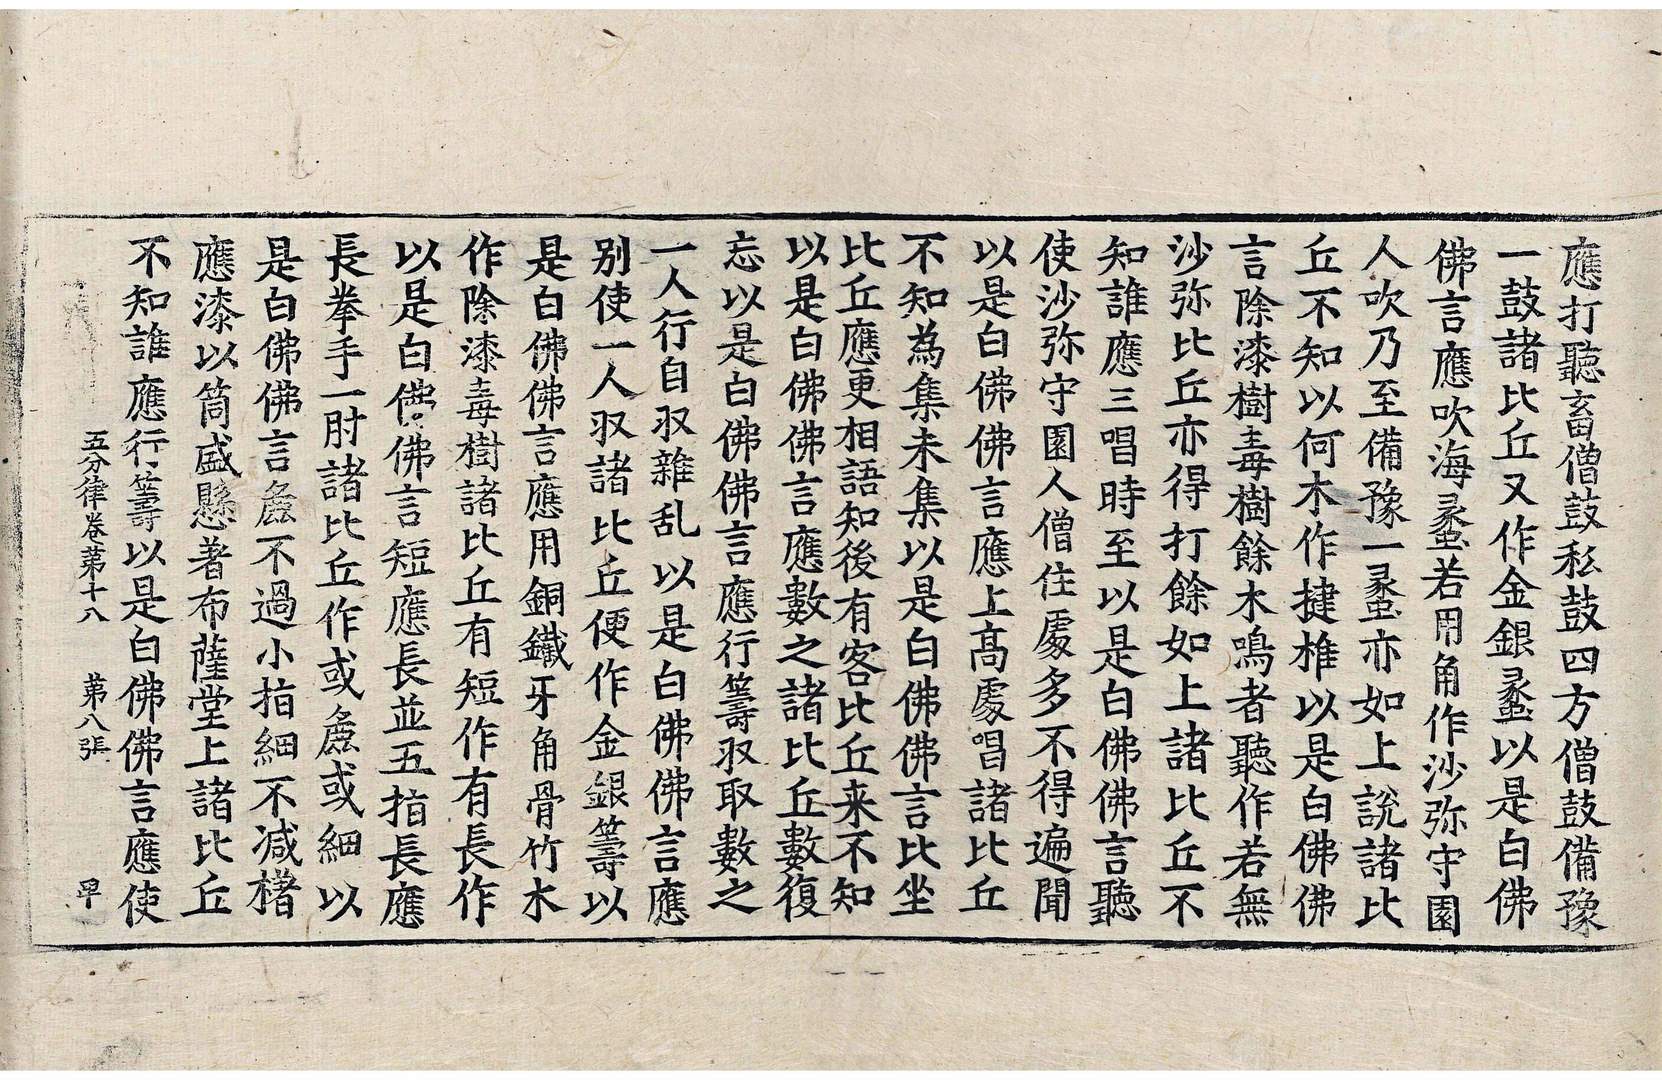 應打聽畜僧鼓私鼓四方僧鼓備豫
一鼓諸比丘又作金銀蠡以是白佛
佛言應吹海蠡若用角作沙弥守園
人吹乃至備豫一蠡亦如上說諸比
丘不知以何木作揵椎以是白佛佛
言除漆樹毒樹餘木鳴者聽作若無
沙弥比丘亦得打餘如上諸比丘不
知誰應三唱時至以是白佛佛言聽
使沙弥守園人僧住處多不得遍聞
以是白佛佛言應上高處唱諸比丘
不知為集未集以是白佛佛言比坐
比丘應更相語知後有客比丘来不知
以是白佛佛言應數之諸比丘數復
忘以是白佛佛言應行籌収取數之
一人行自収雜乱以是白佛佛言應
别使一人収諸比丘便作金銀籌以
是白佛佛言應用銅鐵牙角骨竹木
作除漆毒樹諸比丘有短作有長作
以是白佛佛言短應長並五指長應
長拳手一肘諸比丘作或麁或細以
是白佛佛言麁不過小指細不減櫡
應漆以筒盛懸著布薩堂上諸比丘
不知誰應行籌以是白佛佛言應使
五分律卷苐十八 苐八張 㝵